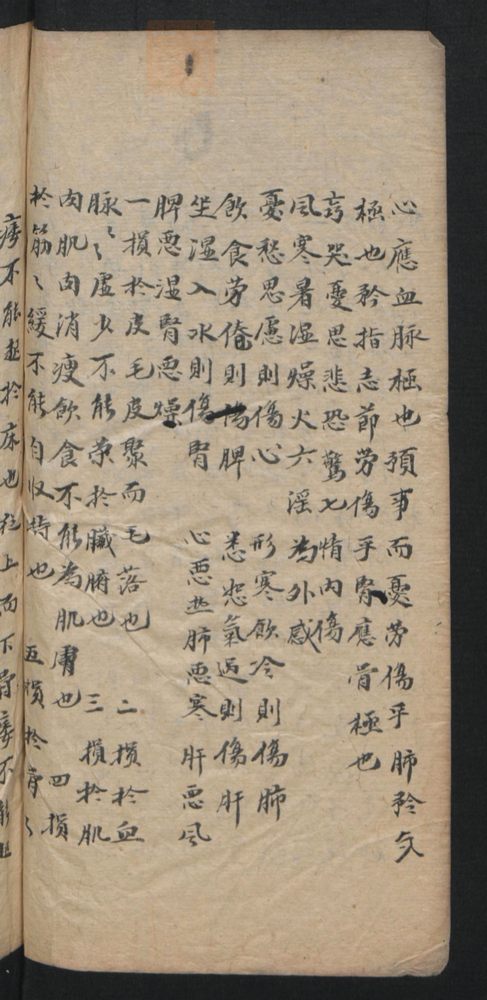 心應血脉極也預事而憂劳傷乎肺矜氣
極也矜指志節劳傷乎腎應骨極也
喜哭憂思悲恐驚七情内傷
風寒暑湿燥火六淫为外感
憂愁思慮則傷心 形寒飲冷則傷肺
飲食劳倦則傷脾 恚怒氣逆則傷肝
坐湿入水則傷腎 心惡热肺惡寒肝惡風
脾惡湿腎惡燥
一損於皮毛皮聚而毛落也 二損於血
脉〻虚少不能荣於臟腑也 三損於肌
肉肌肉消瘦飲食不能为肌膚也 四損
於筋〻緩不能自收持也 五損於骨〻
痿不能起於床也從上而下骨痿不能起